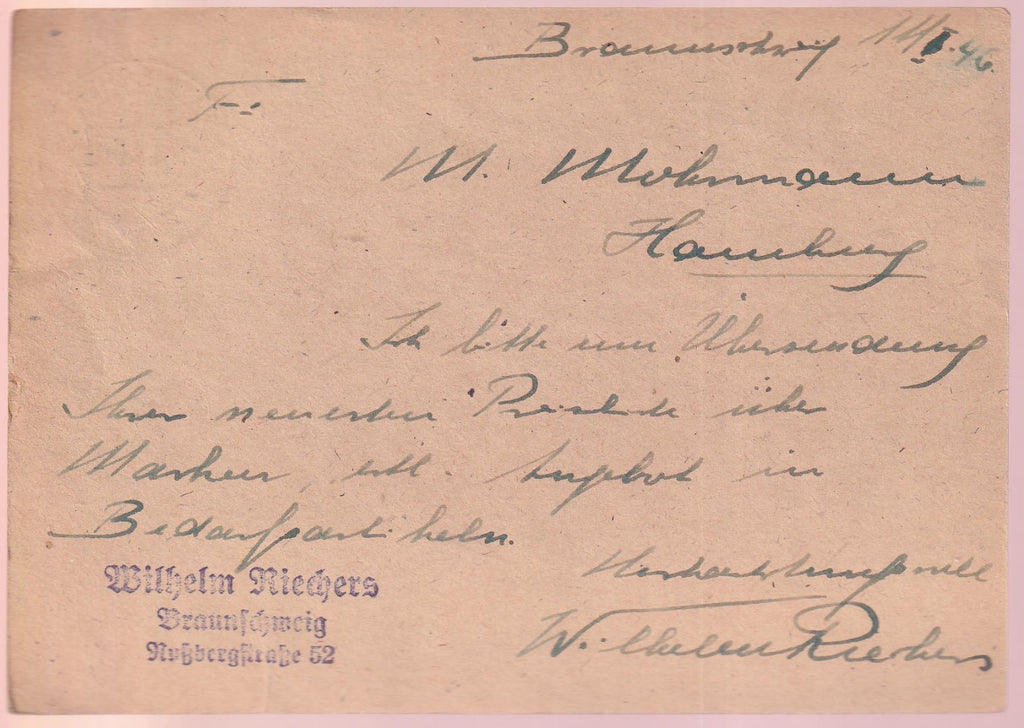 Braunschweig 14.I.46.
Fa:
M. Mohrmann
Hamburg
Ich bitte um Übersendung
Ihrer neuesten Preisliste über
Marken, evtl. Angebot in
Bedarfsartikeln.
Hochachtungsvoll
Wilhelm Riechers
Wilhelm Riechers
Braunschweig
Nußbergstraße 52